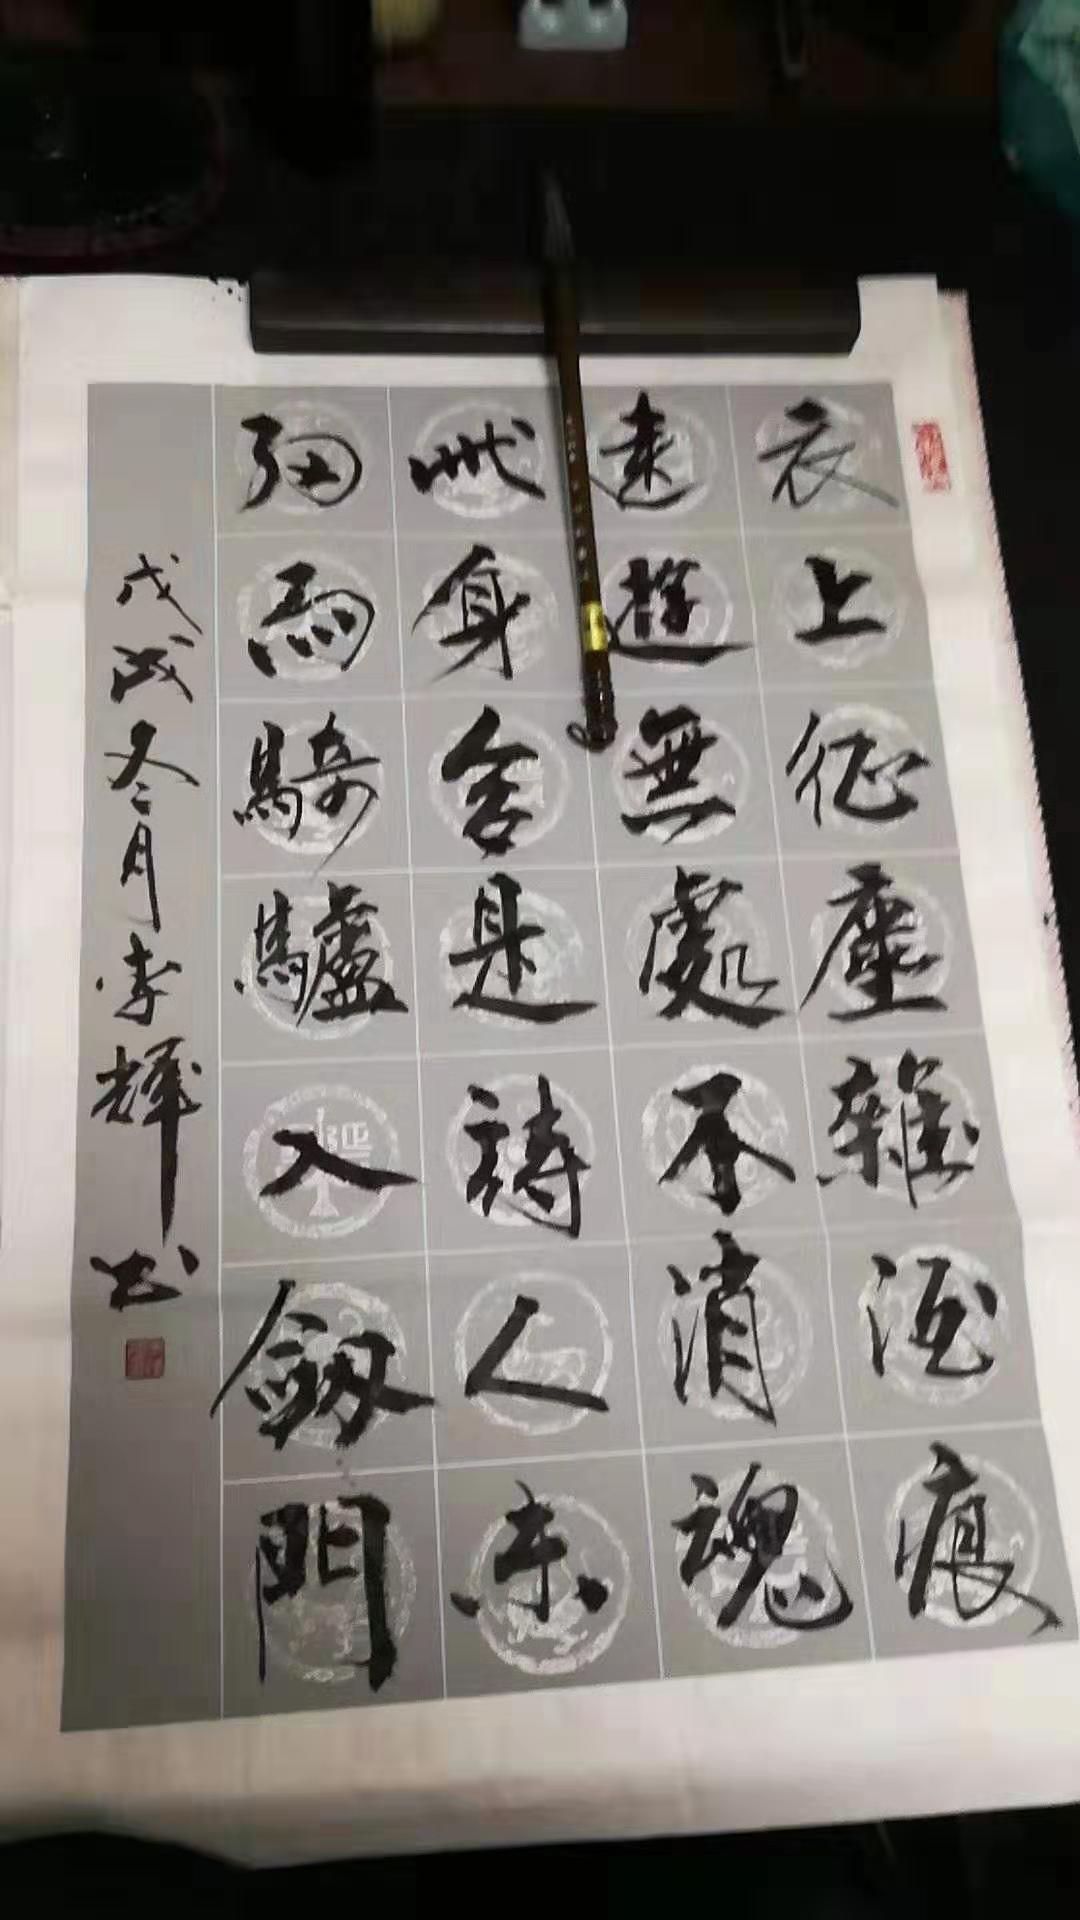 衣上征塵雜酒痕
遠遊無處不消魂
此身合是詩人未
細雨騎驢入劒門
戊戌冬月李輝书